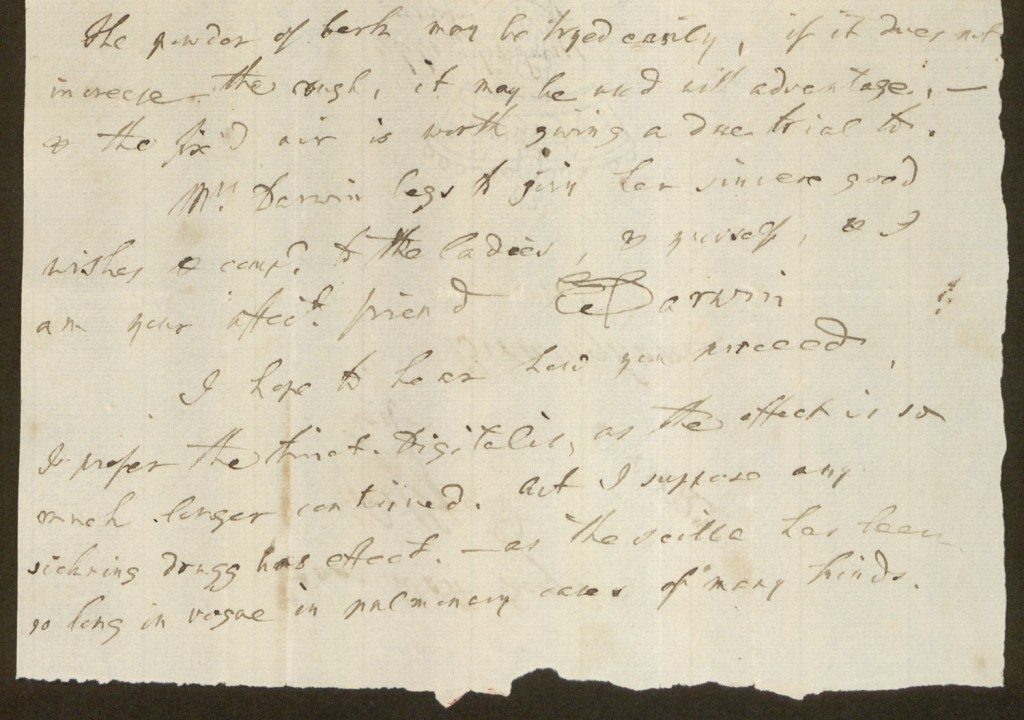 The powder of bark may be tryed easily, if it does not
increase the cough, it may be used with advantage, —
& the fix'd air is worth giving a due trial to.
Mrs. Darwin begs to join her sincere good
wishes & comp.s to the ladies, & yourself, & I
am your affect. friend E Darwin
I hope to hear how you proceed,
I prefer the tinct. Digitalis, as the effect is so
much longer continued. But I suppose any
sickning drugg has effect. — as the scilla has been
so long in vogue in pulmonary cases of many kinds.